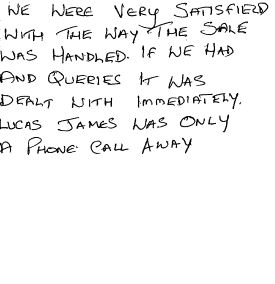 WE WERE VERY SATISFIED
WITH THE WAY THE SALE
WAS HANDLED. IF WE HAD
AND QUERIES IT WAS
DEALT WITH IMMEDIATELY.
LUCAS JAMES WAS ONLY
A PHONE CALL AWAY